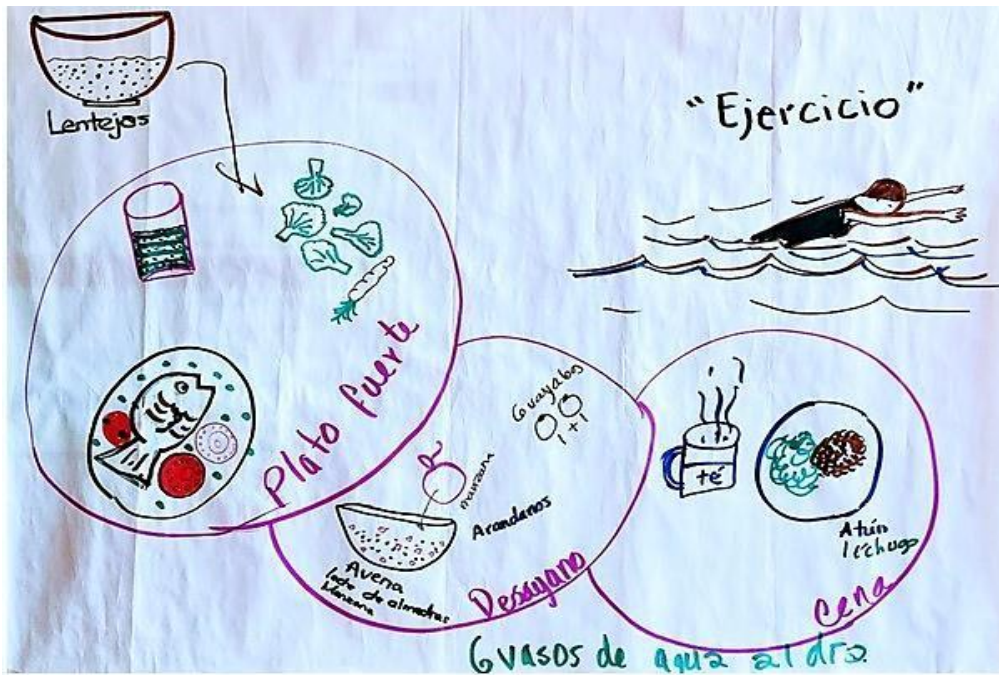 Lentejas
"Ejercicio"
Plato fuerte
Guayabas
1+1
manzana
Arandanos
Avena
leche de almedras
Manzana
Desayuno
té
Atún
lechuga
Cena
6 vasos de agua al dia